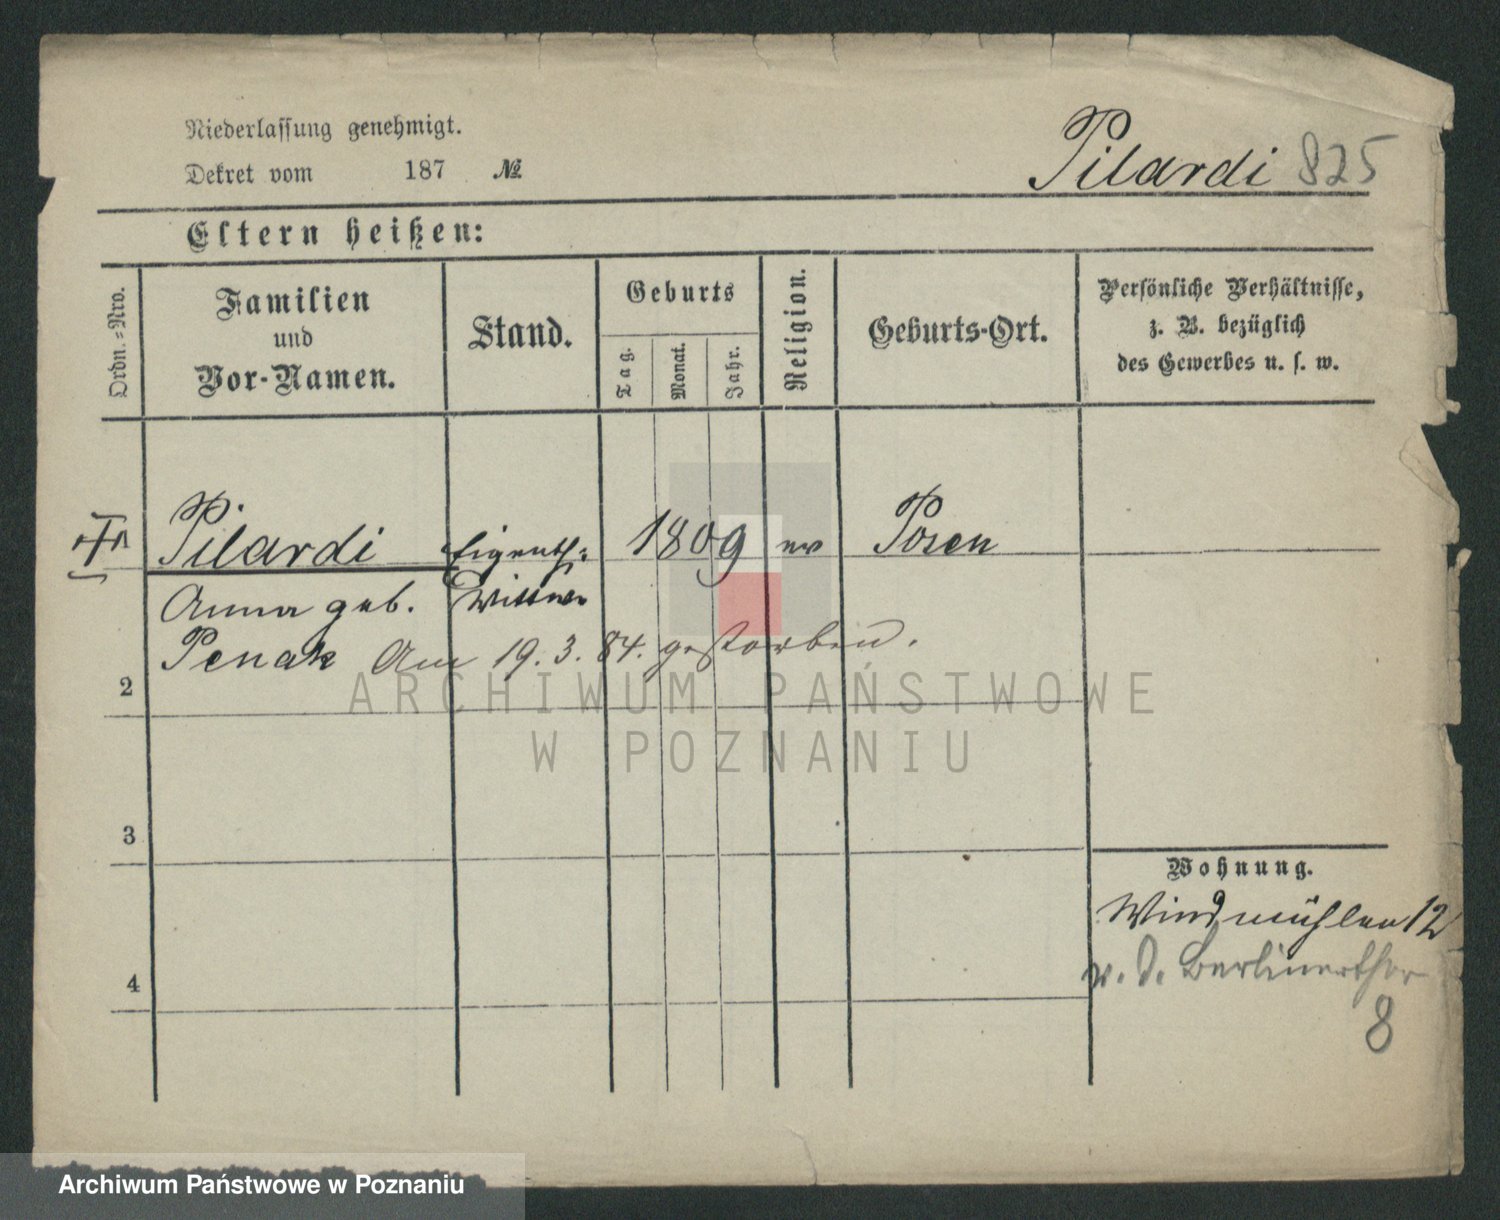 Niederlassung genehmigt.
Dekret vom 187 №
Pilardi 825
Eltern heißen:
Ordn.=Nro.
Familien
und
Vor-Namen.
Stand.
Geburts
Tag.
Monat.
Jahr.
Religion.
Geburts-Ort.
Persönliche Verhältnisse,
z. B. bezüglich
des Gewerbes u. s. w.
Pilardi Eigenth: 1809 ev Posen
Anna geb. Wittwe
Penak Am 19. 3. 84. gestorben.
2
ARCHIWUM PAŃSTWOWE
W POZNANIU
3
Wohnung.
Windmühlen 12
v. d. Berlinerthor
4
8
Archiwum Państwowe w Poznaniu